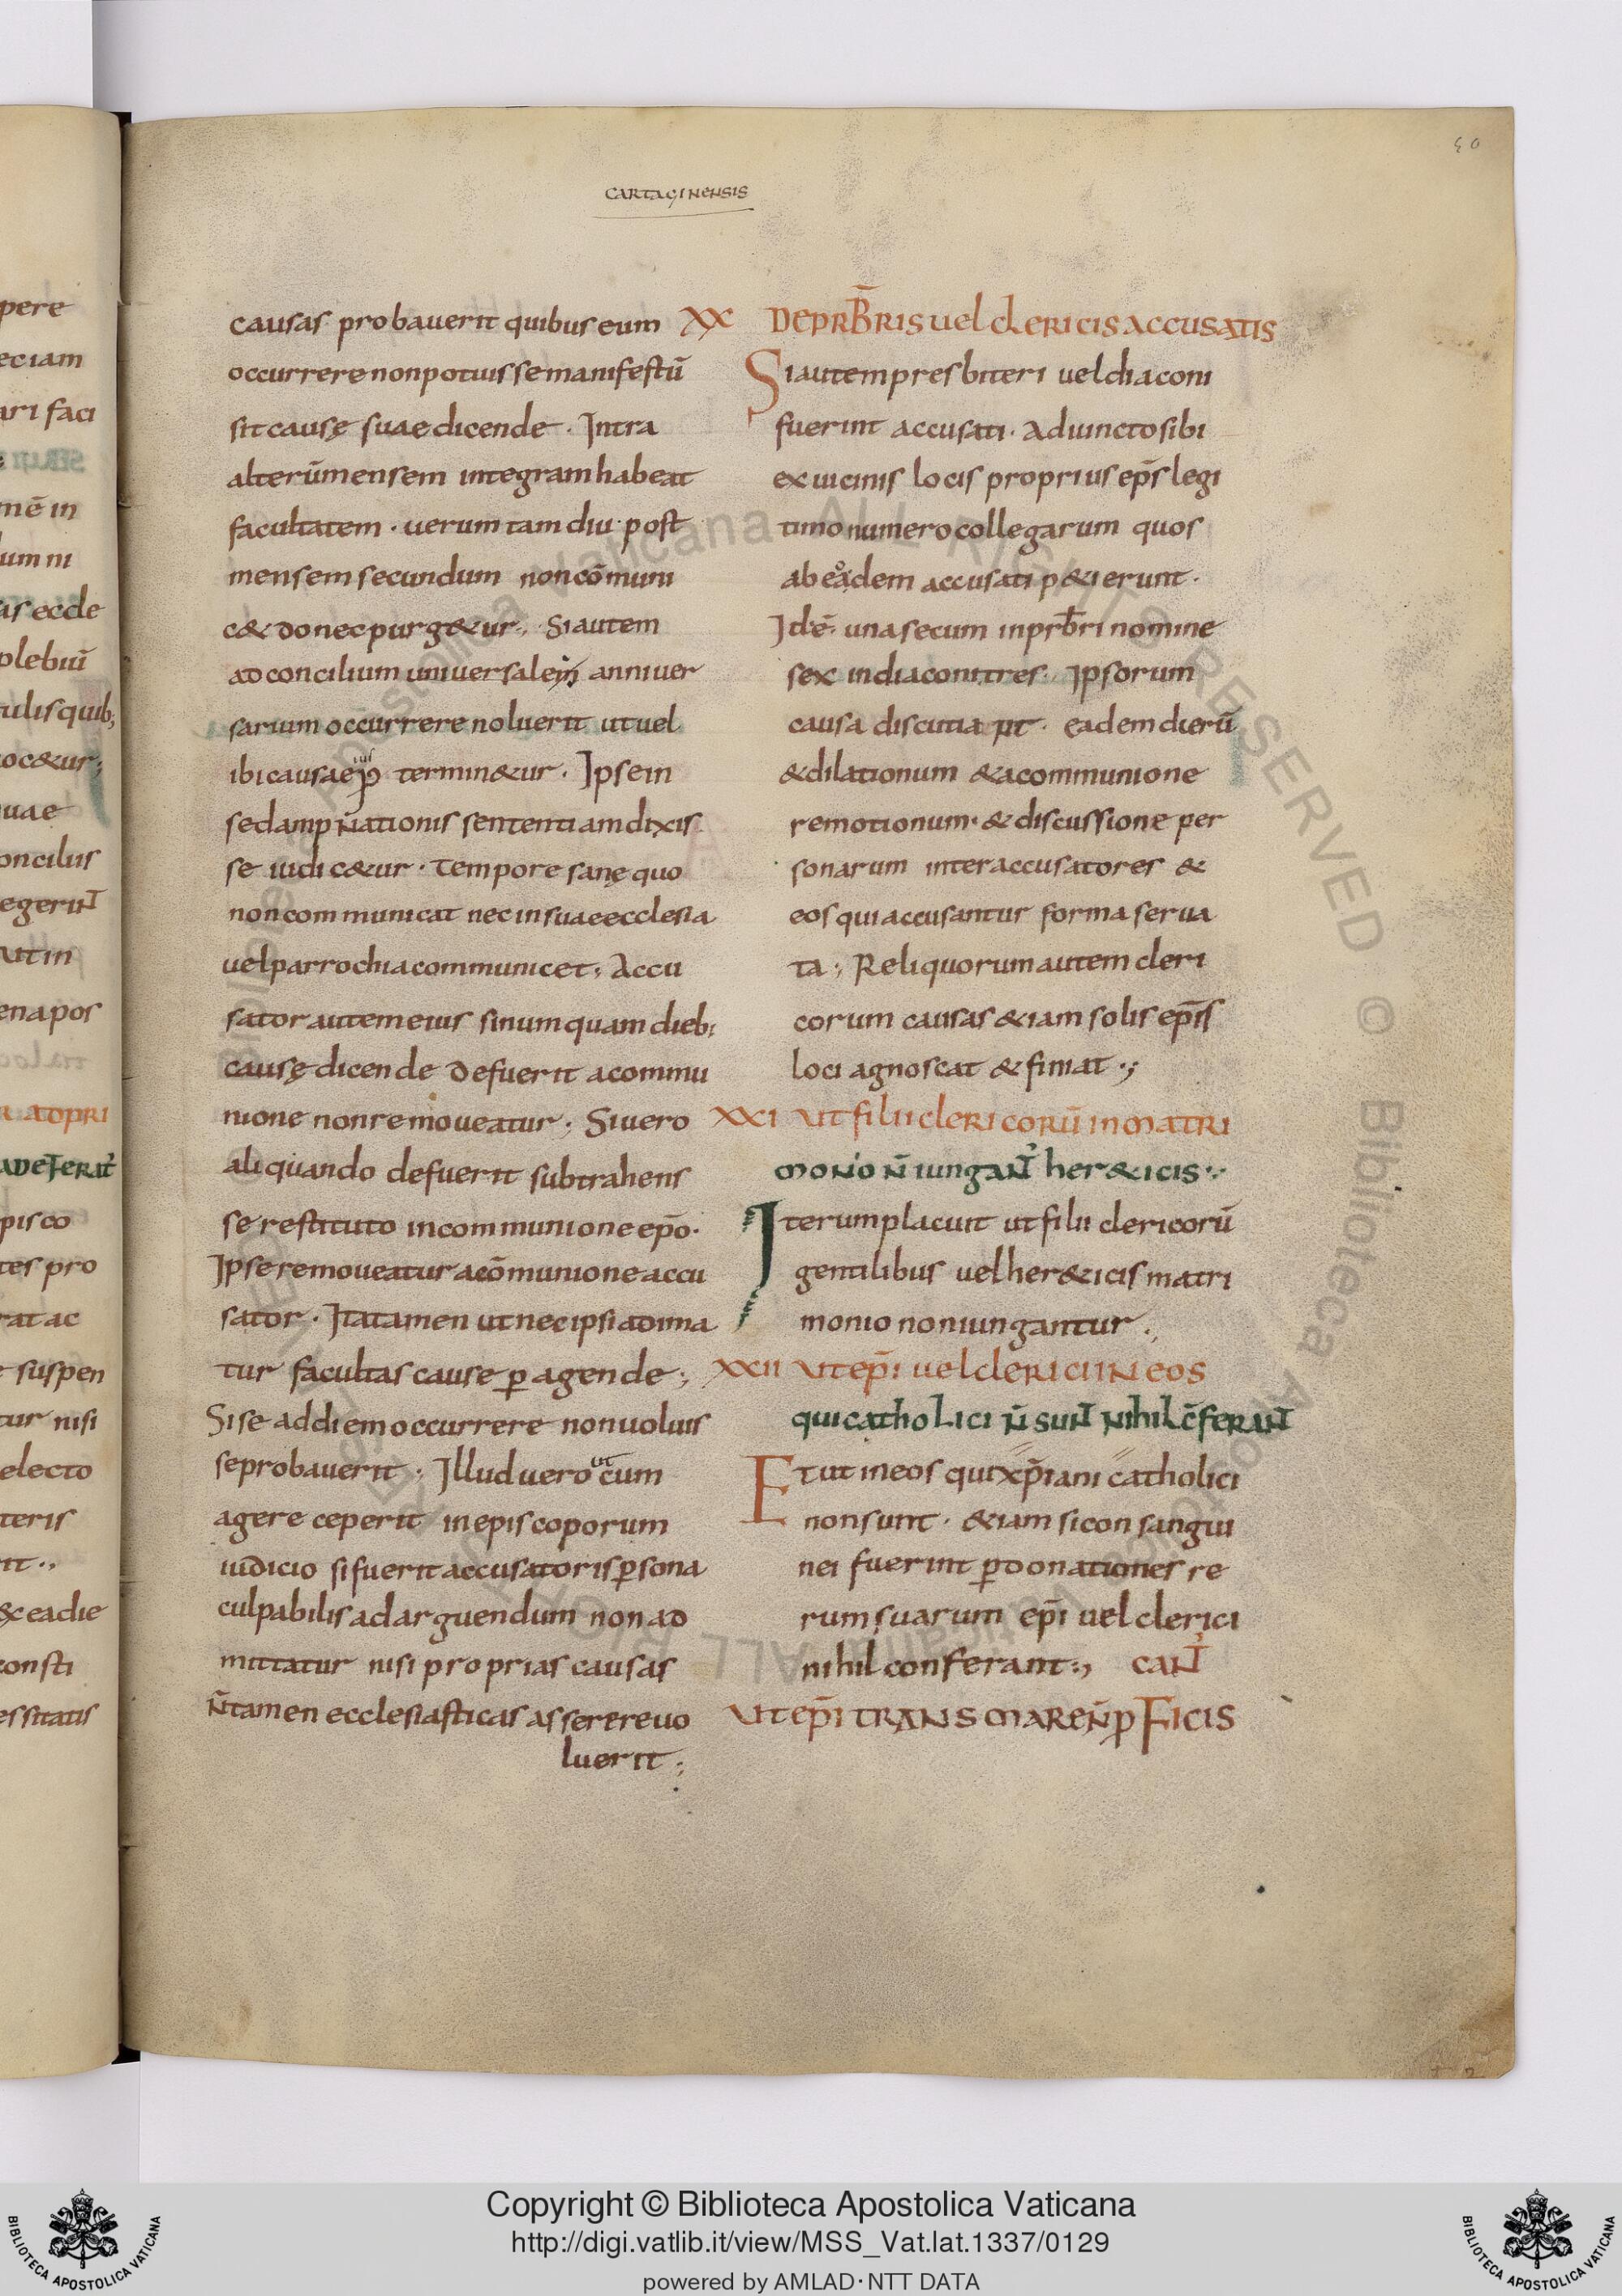 60
CARTAGINENSIS
causas probauerit quibus eum
occurrere non potuisse manifestū
sit causę suae dicende. Intra
alterū mensem integram habeat
facultatem. uerum tam diu post
mensem secundum non cōmuni
c& donec purg&ur. Si autem
ad concilium uniuersale anniuer
sarium occurrere noluerit ut uel
ibi causa ei termin&ur. Ipse in
se dampn̄ationis sententiam dixis
se iudic&ur. Tempore sanę quo
non communicat nec in suae ecclesia
uel parrochia communicet; Accu
sator autem eius si numquam dieb;
causę dicende defuerit a commu
nione non remoueatur; Si uero
aliquando defuerit subtrahens
se restituto in communione ep̄o.
Ipse remoueatur a cōmunione accu
sator. Ita tamen ut nec ipsi adima
tur facultas cause ꝑagende;
Si se ad diem occurrere non uoluis
se probauerit; Illud uero ut cum
agere ceperit in episcoporum
iudicio si fuerit accusatoris ꝑsona
culpabilis ad arguendum non ad
mittatur nisi proprias causas
n̄ tamen ecclesiasticas asserere uo
luerit;
XX DE PRB̄RIS uel clericis accusatis
Si autem presbiteri uel diaconi
fuerint accusati. Adiuncto sibi
ex uicinis locis proprius ep̄s legi
timo numero collegarum quos
ab eodem accusati p&ierunt.
Id ē. una secum in prb̄ri nomine
sex in diaconi tres. Ipsorum
causa discutiant. eadem dierū
& dilationum & a communione
remotionum. & discussione per
sonarum inter accusatores &
eos qui accusantur forma serua
ta; Reliquorum autem cleri
corum causas &iam solis ep̄is
loci agnoscat & finiat;
XXI Ut filii clericorū in matri
monio n̄ iungant̄ her&icis;
Iterum placuit ut filii clericorū
gentilibus uel her&icis matri
monio non iungantur.
XXII Ut ep̄i uel clerici in eos
qui catholici n̄ sunt nihil c̄ferant
Et ut in eos qui xp̄iani catholici
non sunt. &iam si consangui
nei fuerint ꝑ donationes re
rum suarum ep̄i uel clerici
nihil conferant; CAN̄
Ut ep̄i TRANS MARE n̄ ꝓFICIS
Copyright © Biblioteca Apostolica Vaticana
http://digi.vatlib.it/view/MSS_Vat.lat.1337/0129
powered by AMLAD·NTT DATA
BIBLIOTECA APOSTOLICA VATICANA
BIBLIOTECA APOSTOLICA VATICANA